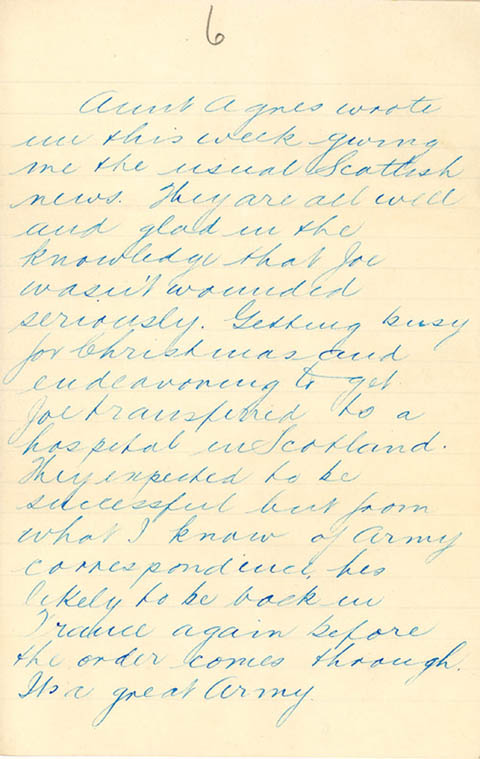 6
Aunt Agnes wrote
me this week giving
me the usual Scottish
news. They are all well
and glad in the
knowledge that Joe
wasn't wounded
seriously. Getting busy
for Christmas and
endeavoring to get
Joe transferred to a
hospital in Scotland.
They expected to be
successful but from
what I know of Army
correspondence, hes
likely to be back in
France again before
the order comes through.
Its a great Army.